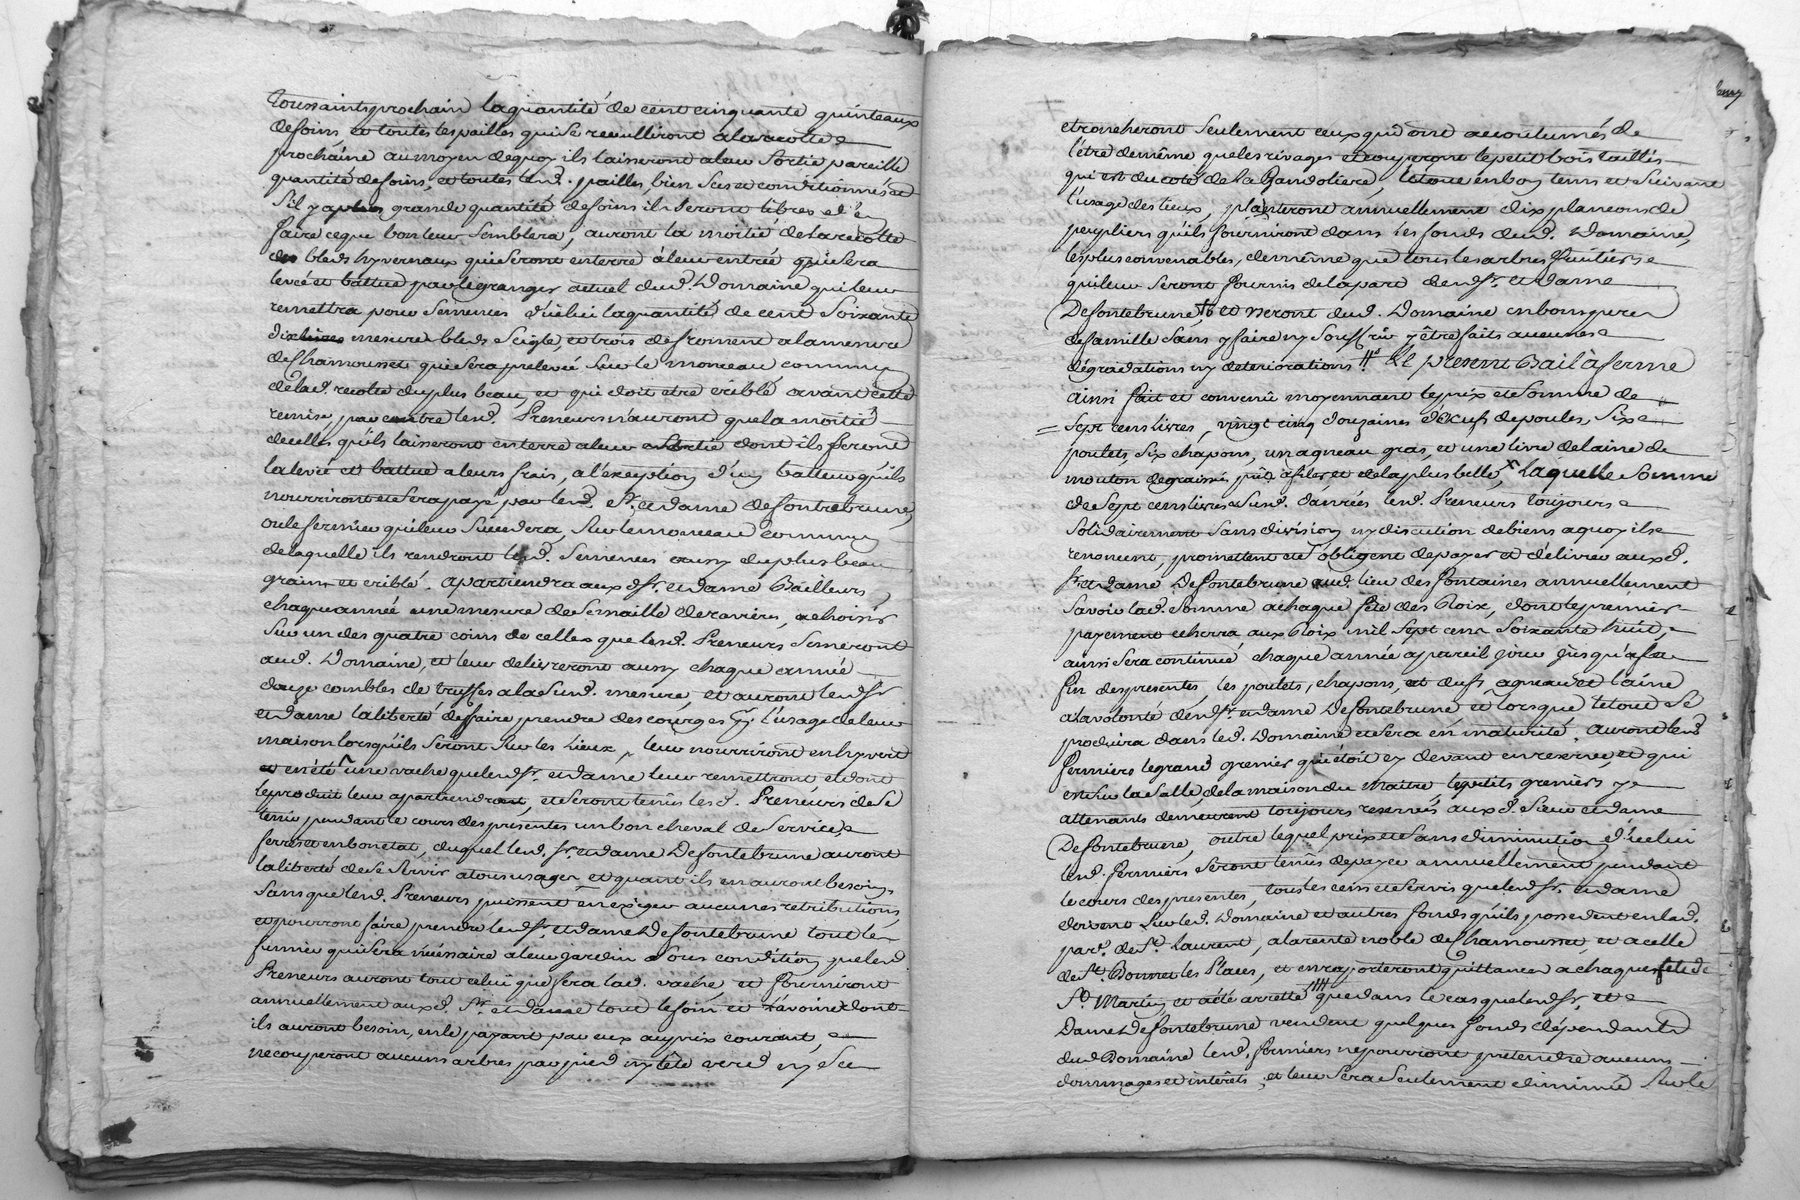 toussaints prochain la quantité de cent cinquante quinteaux
de foins et toutes les pailles qui se receulliront a la recolte
prochaine au moyen de quoy ils laisseront a leur sortie pareille
quantité de foins, et toutes lesd. pailles, bien secs et conditionnés et
s'il y a plus grande quantité de foins ils seront libres d'en
faire ce que bon leur semblera, auront la moitié de la recolte
des bleds hyvernaux qui seront en terre à leur entrée qui sera
levée et battue par le granger actuel dud. Domaine qui leur
remettra pour semences d'icelui la quantité de cent soixante
dix mesures bleds seigle, et trois de froment a la mesure
de Chamousset qui sera prelevée sur le monceau commun
de lad. recolte du plus beau, et qui doit etre criblé avant cette
remise, par contre lesd. Preneurs n'auront que la moitié
de celles qu'ils laisseront en terre a leur sortie dont ils feront
la levée et battue a leurs frais, a l'exeption d'un batteur qu'ils
nourriront et sera payé par lesd. sr. et dame de fontebrune,
ou le fermier qui leur succedera, sur le monceau commun
de laquelle ils rendront lesd. semences aussy du plus beau
grain et criblé. apartiendra auxd. sr. et dame Bailleurs,
chaque année une mesure de semaille de ravieres, a choisir
sur un des quatre coins de celles que lesd. Preneurs semeront
aud. Domaine, et leur delivreront aussy chaque année
douze combles de truffes a la susd. mesure, et auront lesd. sr
et dame la liberté de faire prendre des courges pr. l'usage de leur
maison lorsqu'ils seront sur les lieux, leur nourriront en hyvert
et en été une vache que lesd. sr. et dame leur remettront et dont
le produit leur apartiendront, et seront tenus lesd. Preneurs de se
tenir pendant le cours des presentes un bon cheval de service,
ferré et en bon etat, duquel lesd. sr. et dame De fontebrune auront
la liberté de se servir a tous usages et quant ils en auront besoin,
sans que lesd. Preneurs puissent en exiger aucunes retributions,
et pourront faire prendre lesd. sr. et dame De fontebrune tout le
fumier qui sera nécessaire a leur jardin sous condition que lesd.
Preneurs auront tout celui que fera lad. vache, et fourniront
annuellement auxd. sr. et dame tout le foin et l'avoine dont
ils auront besoin, en le payant par eux au prix courant,
ne couperont aucuns arbres par pied ny tête verd ny sec
et troncheront seulement ceux qui ont accoutumés de
l'être de même que les rivages et couperont le petit bois taillés
qui est du coté de la Bandoliere, le tout en bon tems et suivant
l'usage des lieux, planteront annuellement dix plancons de
peupliers qu'ils fourniront dans les fonds dud. Domaine,
les plus convenables, de même que tous les arbres fruitiers
qui leur seront fournis de la part desd. sr. et dame
De fontebrune, et useront dud. Domaine en bon pere
de famille sans y faire ny souffrir y être faits aucunes
dégradations ny deteriorations # Le present Bail à ferme
ainsi fait et convenû moyennant le prix et somme de
= sept cens livres, vingt cinq douzaines d'Œufs de poules, six
poulets, six chapons, un agneau gras, et une livre de laine de
mouton degraissée, prête à filer et de la plus belle, x laquelle somme
de sept cens livres et susd. danrées lesd. Preneurs toujours
solidairement sans division ny discution de biens a quoy ils
renoncent, promettent et s'obligent de payer et délivrer auxd.
sr. et dame De fontebrune aud. lieu des fontaines annuellement
savoir lad. somme a chaque fête des Roix, dont le premier
payement echerra aux Roix mil sept cens soixante huit,
ainsi sera continué chaque année a pareil jour jusqu'a la
fin des presentes, les poulets, chapons, et œufs, agneau et laine
a la volonté desd. sr. et dame De fontebrune et lorsque le tout se
produira dans led. Domaine et sera en maturité. auront lesd.
fermiers le grand grenier qui étoit cy devant en reserve, et qui
est sur la salle de la maison du maitre les petits greniers y
attenants demeurent toujours reservés auxd. sieur et dame
De fontebrune, outre lequel prix et sans diminution d'icelui
lesd. fermiers seront tenus de payer annuellement pendant
le cours des presentes, tous les cens et servis que lesd. sr. et dame
doivent sur led. Domaine et autres fonds qu'ils possedent en lad.
parr. de St. Laurent, a la rente noble de Chamousset, et a celle
de St. Bonnet les Places, et en raporteront quittances a chaques fête de
St. Martin, et a été arretté que dans le cas que lesd. sr. et
Dame De fontebrune vendent quelques fonds dépendants
dud. Domaine lesd. fermiers ne pourront pretendre aucuns
dommages et intérêts, et leur sera seulement diminué sur le